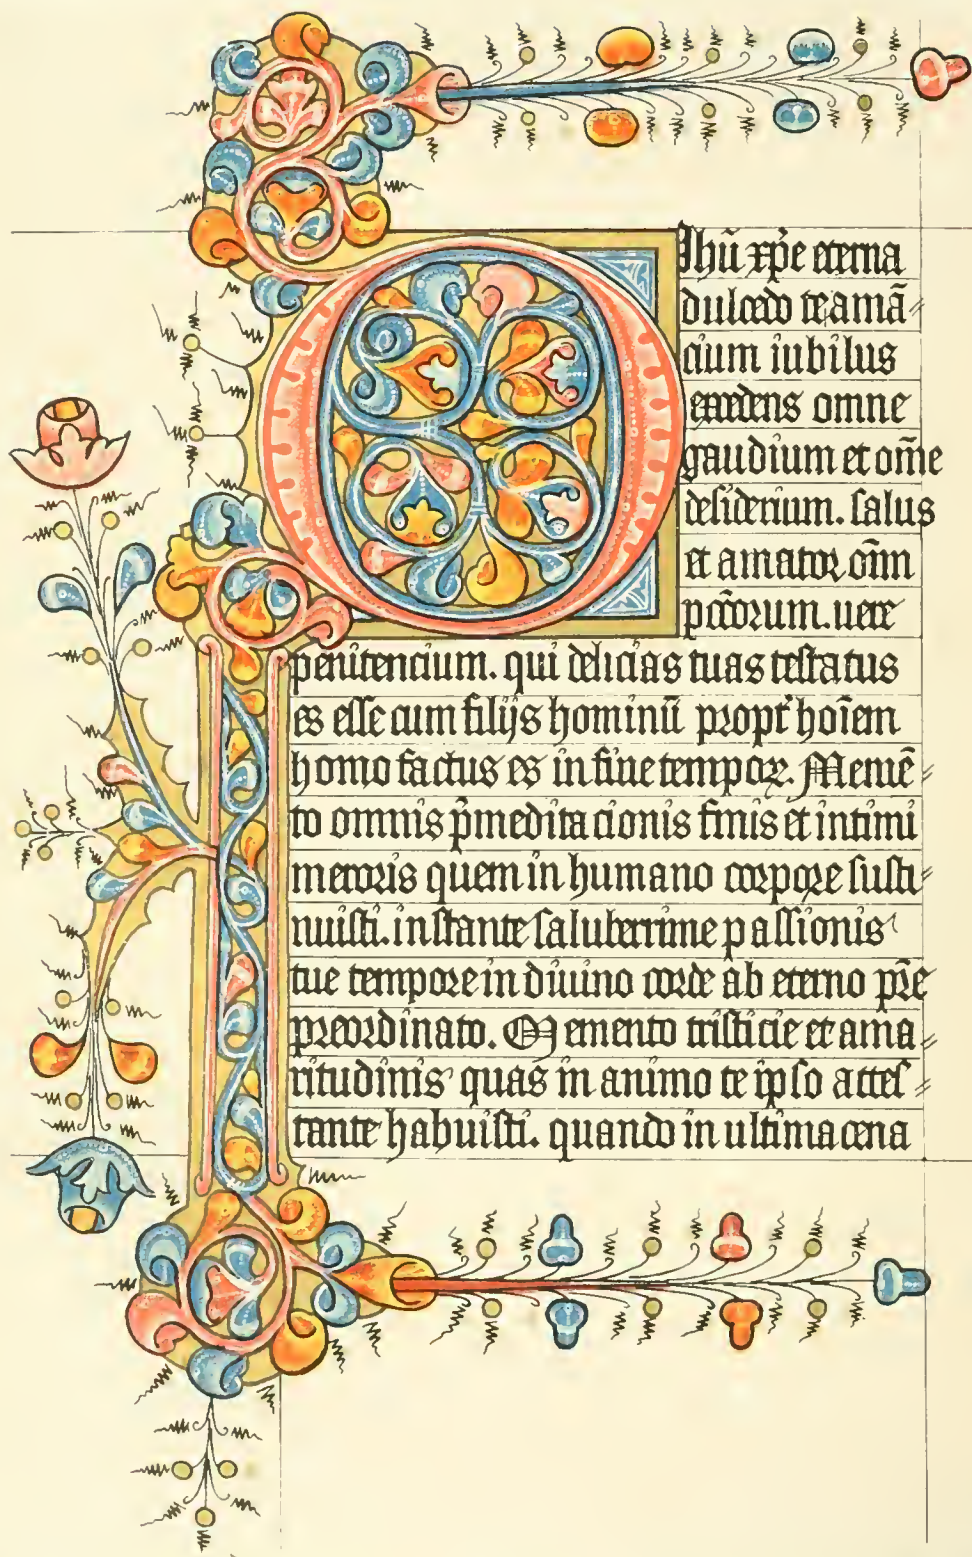 O Jhū xp̄e eterna
dulcedo te amā
cium iubilus
excedens omne
gaudium et om̄e
desiderium. salus
et amator om̄n
pctōrum. uere
penitencium. qui delicias tuas testatus
es esse cum filijs hominū propt' hoīem
homo factus es in fine tempoꝝ. Memē
to omnis p̄meditacionis finis et intimi
meroris quem in humano corpore susti
nuisti. instante saluberrime passionis
tue tempore in diuino corde ab eterno p̄re
preordinato. Memento tristicie et ama
ritudinis quas in animo te ipso attes
tante habuisti. quando in ultima cena